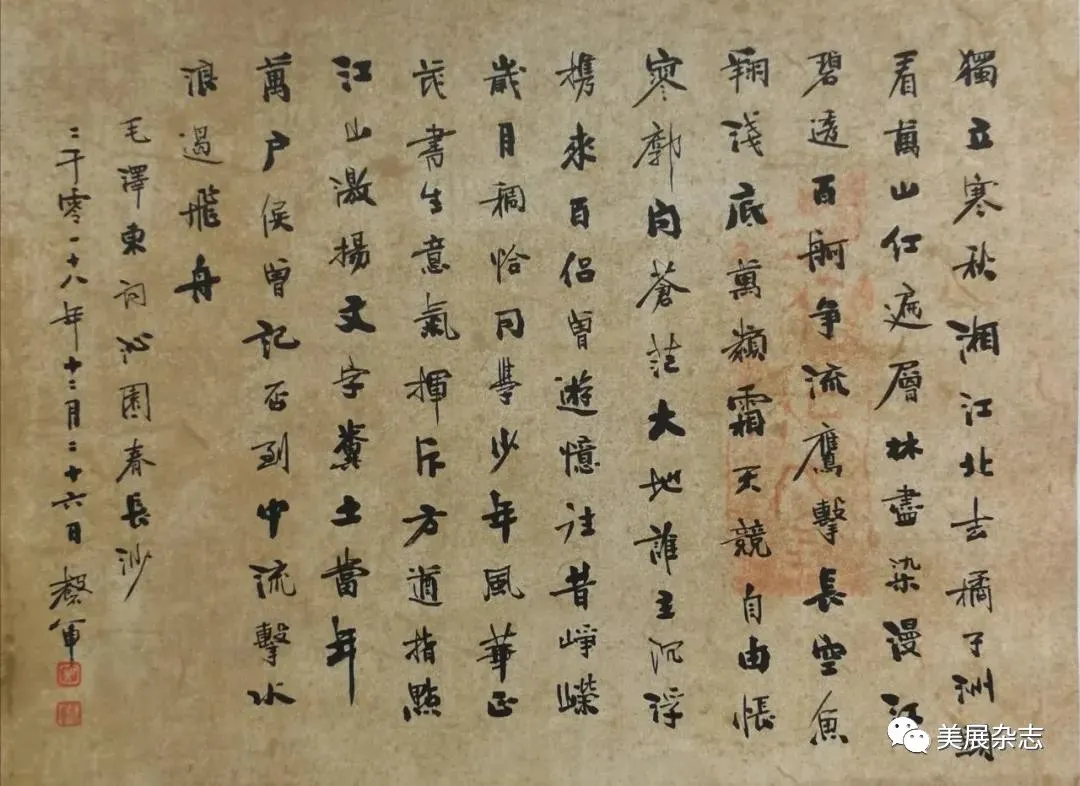 獨立寒秋湘江北去橘子洲頭
看萬山红遍層林盡染漫江
碧透百舸争流鷹擊長空魚
翔淺底萬類霜天競自由悵
寥廓问蒼茫大地誰主沉浮
携來百侣曾遊憶往昔崢嶸
歲月稠恰同學少年風華正
茂書生意氣揮斥方遒指點
江山激揚文字糞土當年
萬户侯曾記否到中流擊水
浪遏飛舟
毛澤東词沁園春長沙
二千零一十八年十二月二十六日 蔡軍
美展杂志